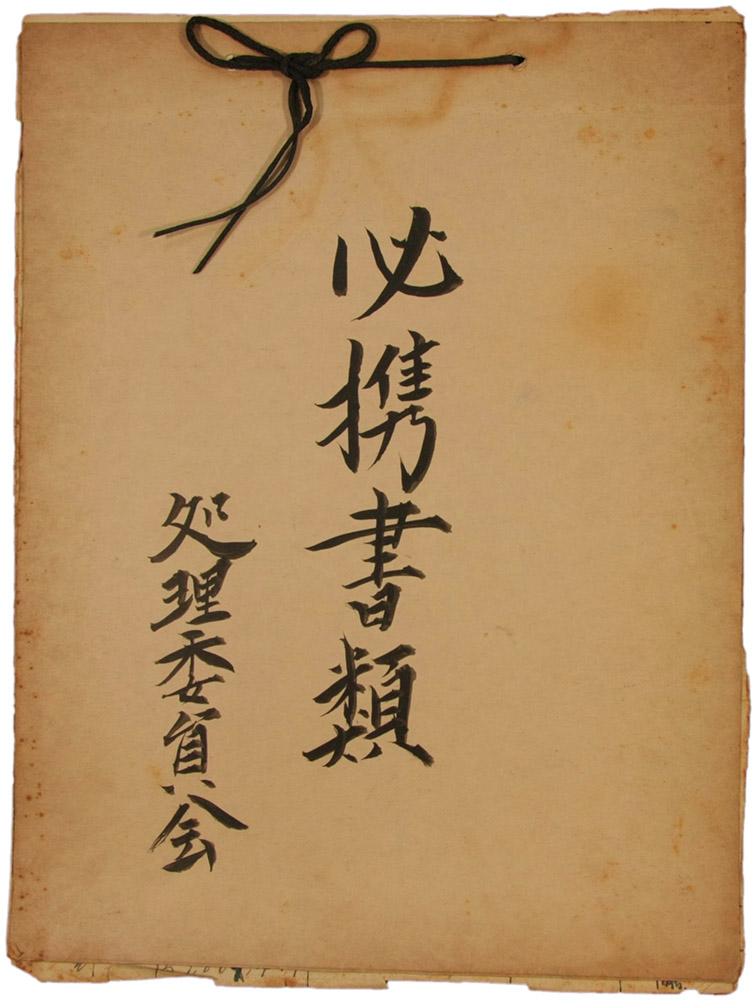 必携書類
処理委員会